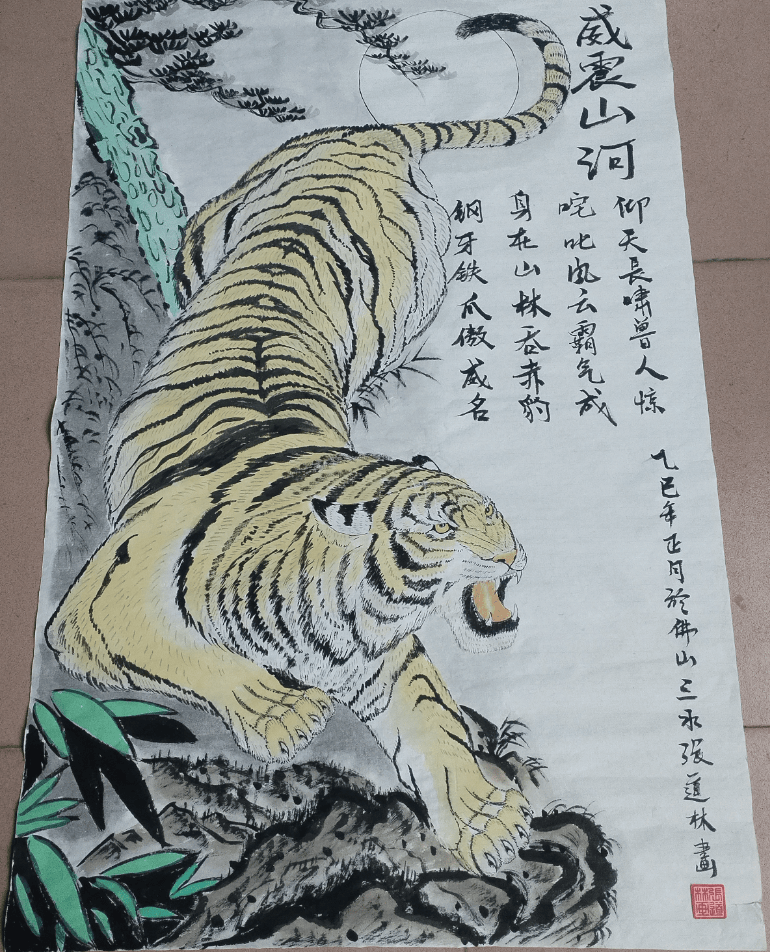 威震山河
仰天長嘯兽人惊
咤叱风云霸气成
身在山林吞赤豹
钢牙铁爪傲威名
乙巳年正月於佛山三水張道林畫